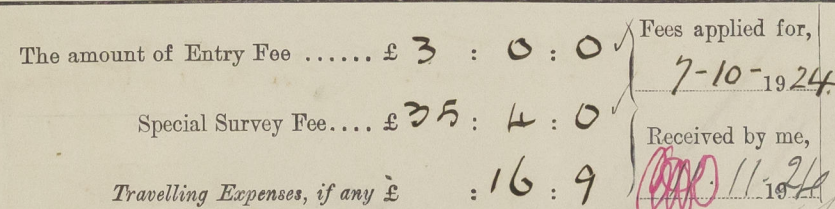 The amount of Entry Fee ...... £ 3 : 0 : 0
Special Survey Fee.... £ 35 : 4 : 0
Travelling Expenses, if any £ : 16 : 9
Fees applied for,
7-10-1924.
Received by me,
11-1924